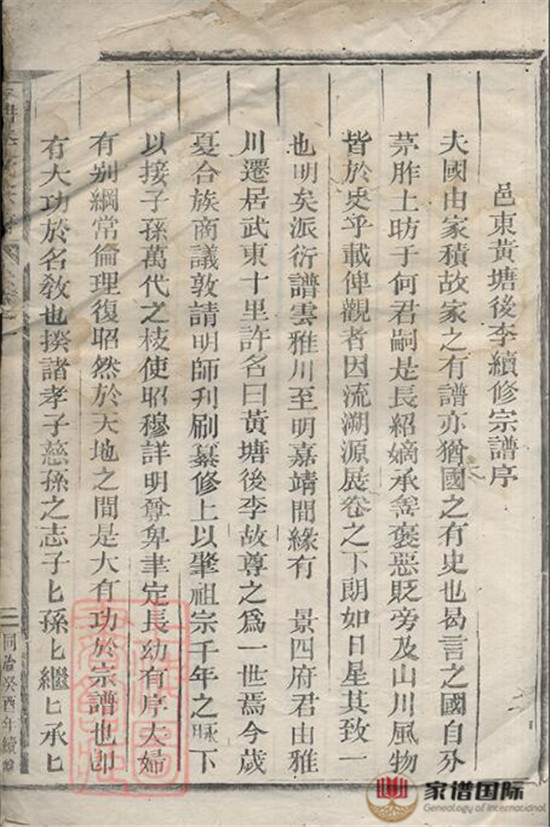 邑東黃塘後李續修宗譜序
夫國由家積故家之有譜亦猶國之有史也曷言之國自分
茅胙土昉于何君嗣是長紹嫡承善褒惡貶旁及山川風物
皆於史乎載俾觀者因流溯源展卷之下朗如日星其致一
也明矣派衍譜雲雅川至明嘉靖間緣有 景四府君由雅
川遷居武東十里許名曰黃塘後李故尊之為一世焉今歲
夏合族商議敦請明師刋刷纂修上以肇祖宗千年之脈下
以接子孫萬代之枝使昭穆詳明尊卑聿定長幼有序夫婦
有别綱常倫理復昭然於天地之間是大有功於宗譜也卽
有大功於名敎也揆諸孝子慈孫之志子匕孫匕繼匕承匕
同治癸酉年續修
家谱国际
Genealogy of International